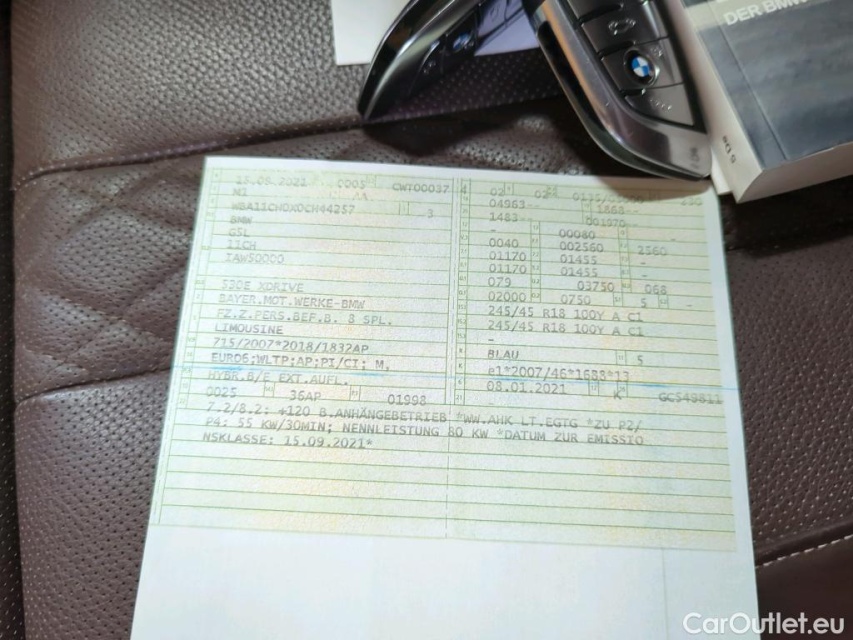 DER BMW
15.09.2021 0005 CWT00037
M1
WBA11CH0X0CH44257 3
BMW
G5L
11CH
IAW50000
530E XDRIVE
BAYER.MOT.WERKE-BMW
FZ.Z.PERS.BEF.B. 8 SPL.
LIMOUSINE
715/2007*2018/1832AP
EURO6;WLTP;AP;PI/CI; M,
HYBR.B/E EXT.AUFL.
0025 36AP 01998
02 02
04963-- 1868
1483-- 001970
- 00080 -
0040 002560 2560
01170 01455 -
01170 01455 -
079 03750 068
02000 0750 5 -
245/45 R18 100Y A C1
245/45 R18 100Y A C1
-
BLAU 5
e1*2007/46*1688*13
08.01.2021 K GC549811
7.2/8.2; +120 B.ANHÄNGEBETRIEB *WW.AHK LT.EGTG *ZU P2/
P4: 55 KW/30MIN; NENNLEISTUNG 80 KW *DATUM ZUR EMISSIO
NSKLASSE: 15.09.2021*
CarOutlet.eu